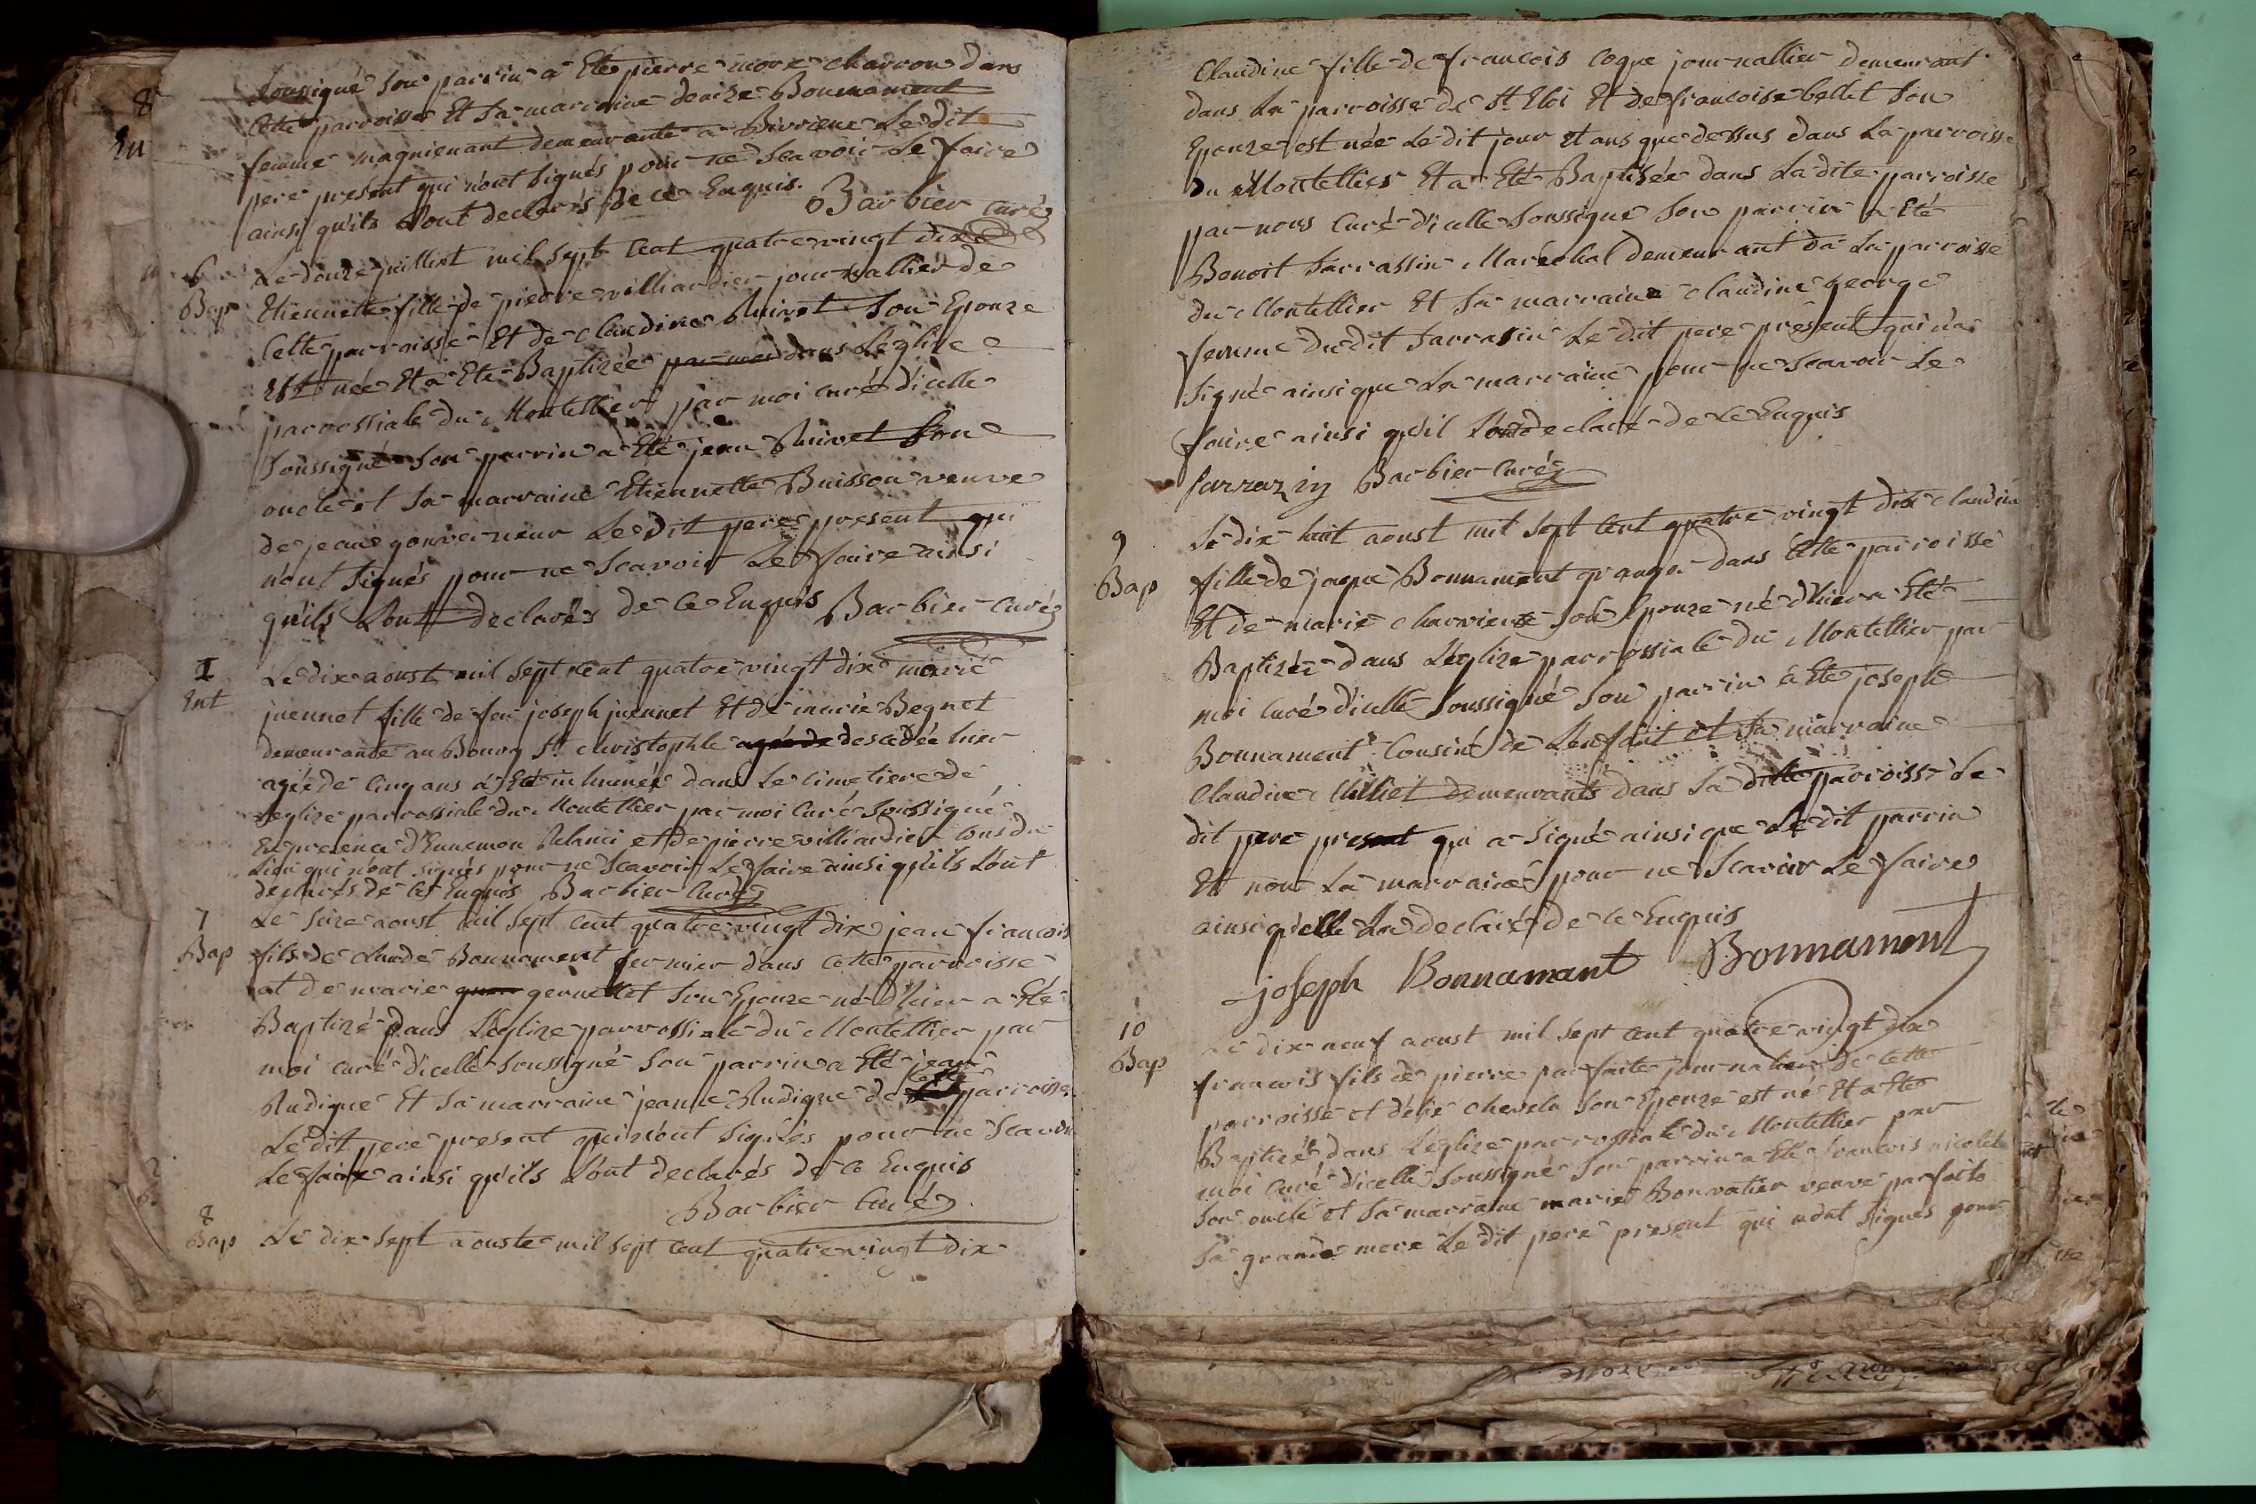 soussigné son parrin a Eté pierre more charron dans
Cette parroisse Et sa marraine denize Bonnament
femme magnienant demeurante a Birrieue Le dit
pere present qui n'ont signés pour ne scavoir Le faire
ainsi qu'ils L'ont declarés de ce Enquis. Barbier curé
6 Le douze juillliet mil sept cent quatre vingt dix
Bap Etiennette fille de pierre villiardier journallier de
Cette parroisse Et de Claudine Ruivet son Epouze
Est née Et a Eté Baptizée par moi dans L'eglize
parrossiale du Montellier par moi curé d'icelle
soussigné son parrin a Eté jean Ruivet son
oncle et sa marraine Etiennette Buisson veuve
de jean gouverneur Le dit pere present qui
n'ont signés pour ne scavoir Le faire ainsi
qu'ils L'ont declarés de ce Enquis Barbier curé
I Le dix aoust mil sept cent quatre vingt dix marie
Ent juennet fille de feu joseph juennet Et de marie Begnet
demeurante au Bourg St christophle agée de descedée hier
agée de cinq ans a Eté inhumée dans Le cimetiere de
L'eglize parrossiale du Montellier par moi Curé soussigné
En presence d'Ennemon et de pierre villiardier tous du
Lieu qui n'ont signés pour ne scavoir Le faire ainsi qu'ils L'ont
declarés de ce Enquis Barbier Curé
7 Le seize aoust mil sept cent quatre vingt dix jean francois
Bap fils de claude Bonnament fermier dans cette parroisse
et de marie gennettet son Epouze né d'hier a Eté
Baptizé dans L'eglize parrossiale du Montellier par
moi curé d'icelle soussigné son parrin a Eté jean
cette
Rudigue Et sa marraine jeanne Rudigue de parroisse
Le dit pere present qui n'ont signés pour ne scavoir
Le faire ainsi qu'ils L'ont declarés de ce Enquis
Barbier Curé
8
Bap Le dix sept aouste mil sept cent quatre vingt dix
Claudine fille de francois coque journallier demeurant
dans La parroisse de St Eloi Et de francoise bellet son
Epouze est née Le dit jour Et ans que dessus dans La parroisse
du Montellier Et a Eté Baptisée dans La dite parroisse
par nous curé d'icelle soussigné son parrin a Eté
Benoit Sarrassin Maréchal demeurant da La parroisse
du Montellier Et sa marraine claudine george
femme du dit sarrasin Le dit pere present qui n'a
signé ainsi que La marraine pour ne scavoir Le
faire ainsi qu'il L'ont declaré de ce Enquis
sarrazin Barbier Curé
9 Le dix huit aoust mil sept cent quatre vingt dix claudine
Bap fille de jaque Bonnament granger dans cette parroisse
Et de marie charriere son Epouze né d'hier a Eté
Baptizée dans L'eglize parrossiale du Montellier par
moi curé d'icelle soussigné son parrin a Eté joseph
Bonnament Cousin de L'enfant et sa marraine
Claudine Milliet demeurants dans La dite parroisse Le
dit pere present qui a signé ainsi que Le dit parrin
Et non La marraine pour ne scavoir Le faire
ainsi qu'elle L'a declaré de ce Enquis
joseph Bonnamant Bonnamont
10 Le dix neuf aoust mil sept cent quatre vingt dix
Bap francois fils de pierre parfaite journalier de cette
parroisse et d'élie chevelu son Epouze est né Et a Eté
Baptizé dans L'eglize parrossiale du Montellier par
moi curé d'icelle soussigné son parrin a Eté francois nicolete
son oncle et sa marraine marie Bonvatier veuve parfaite
sa grande mere Le dit pere present qui n'ont signés pour